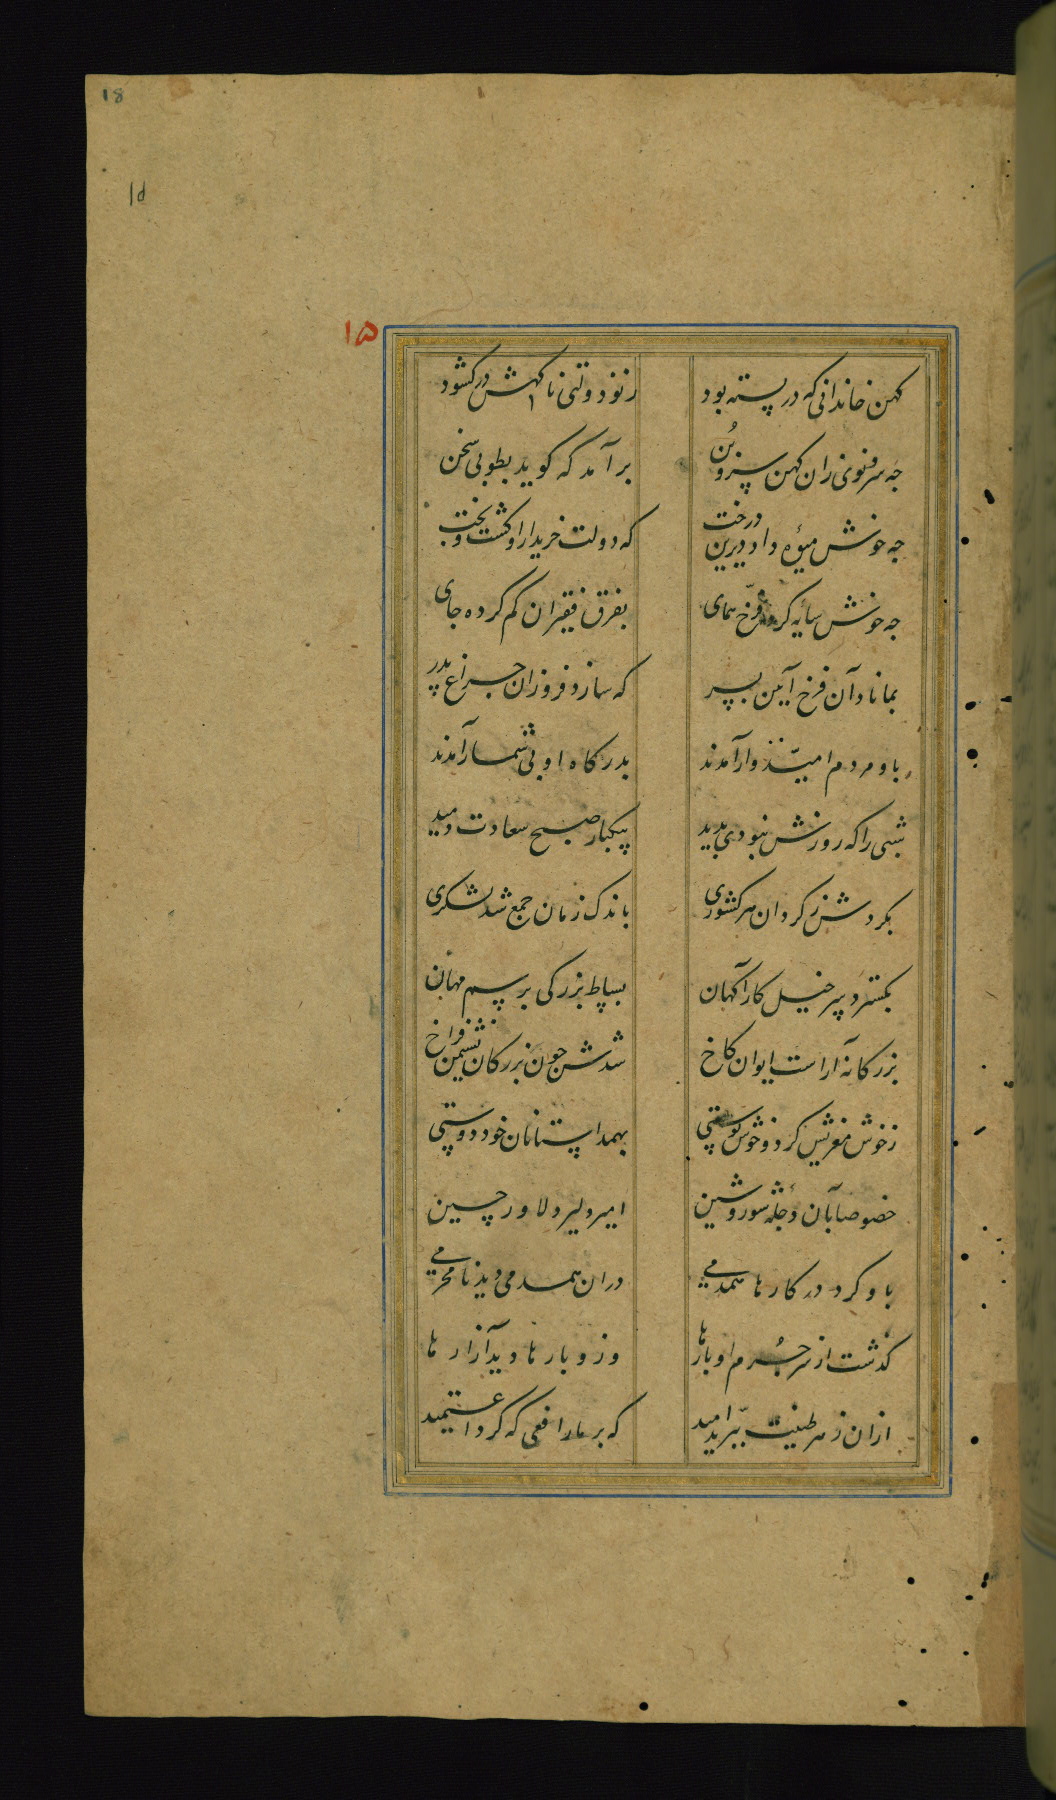 18
۱۵
کهن خاندانی که در بسته بود ز نو دولتی ناکهش در کشود
چه سر فنوی زان کهن سرو بُن بر آمد که کوید بطوبی سخن
چه خوش میوه داد دیرین درخت که دولت خریدار او کشت و بخت
چه خوش سایه کرد فرّخ همای بفرق فقیران کم کرده جای
بماناد آن فرخ آیین پسر که سازد فروزان چراغ پدر
باو مردم امیدوار آمدند بدرکاه او بی شمار آمدند
شبی را که روزش نبودی پدید بیکبار صبح سعادت دمید
بکردش ز کردان هر کشوری باندک زمان جمع شد لشکری
بکسترد سرخیل کارآکهان بساط بزرکی برسم مهان
بزرکانه آراست ایوان کاخ شدش چون بزرکان نشیمن فراخ
ز خوش مغزیش کرد و خوش پوستی بهمداستانان خود دوستی
خصوصا بآن دجله شور و شین امیر دلیر دلاور حسین
باو کرد در کارها همدمی در آن همدمی دید نامحرمی
کذشت از سر جُرم او بارها وزو بارها دید آزارها
از آن زهر طینت ببرید امید که بر مار افعی که کرد اعتمید